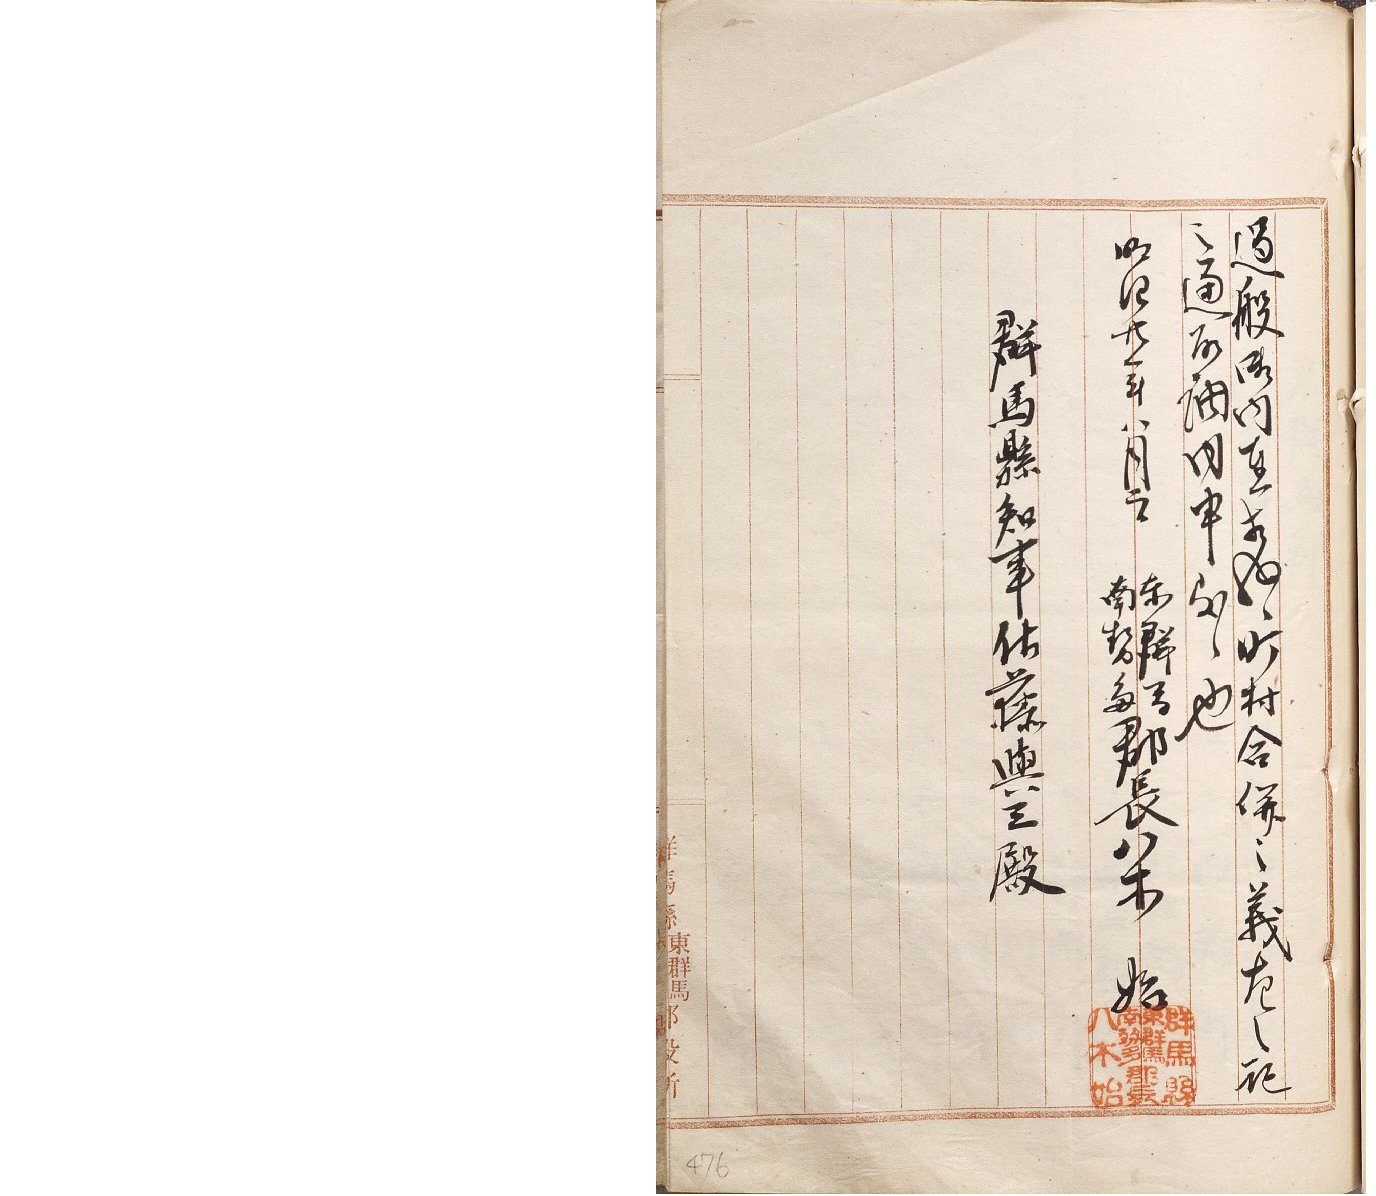 過般御内相成候町村合併之義左之記
之通取調内申候也
明治廿一年八月
東群馬
南勢多
郡長八木始
群馬縣
東群馬
南勢多郡長
八木始
群馬縣知事佐藤與三殿
群馬縣東群馬郡役所
476